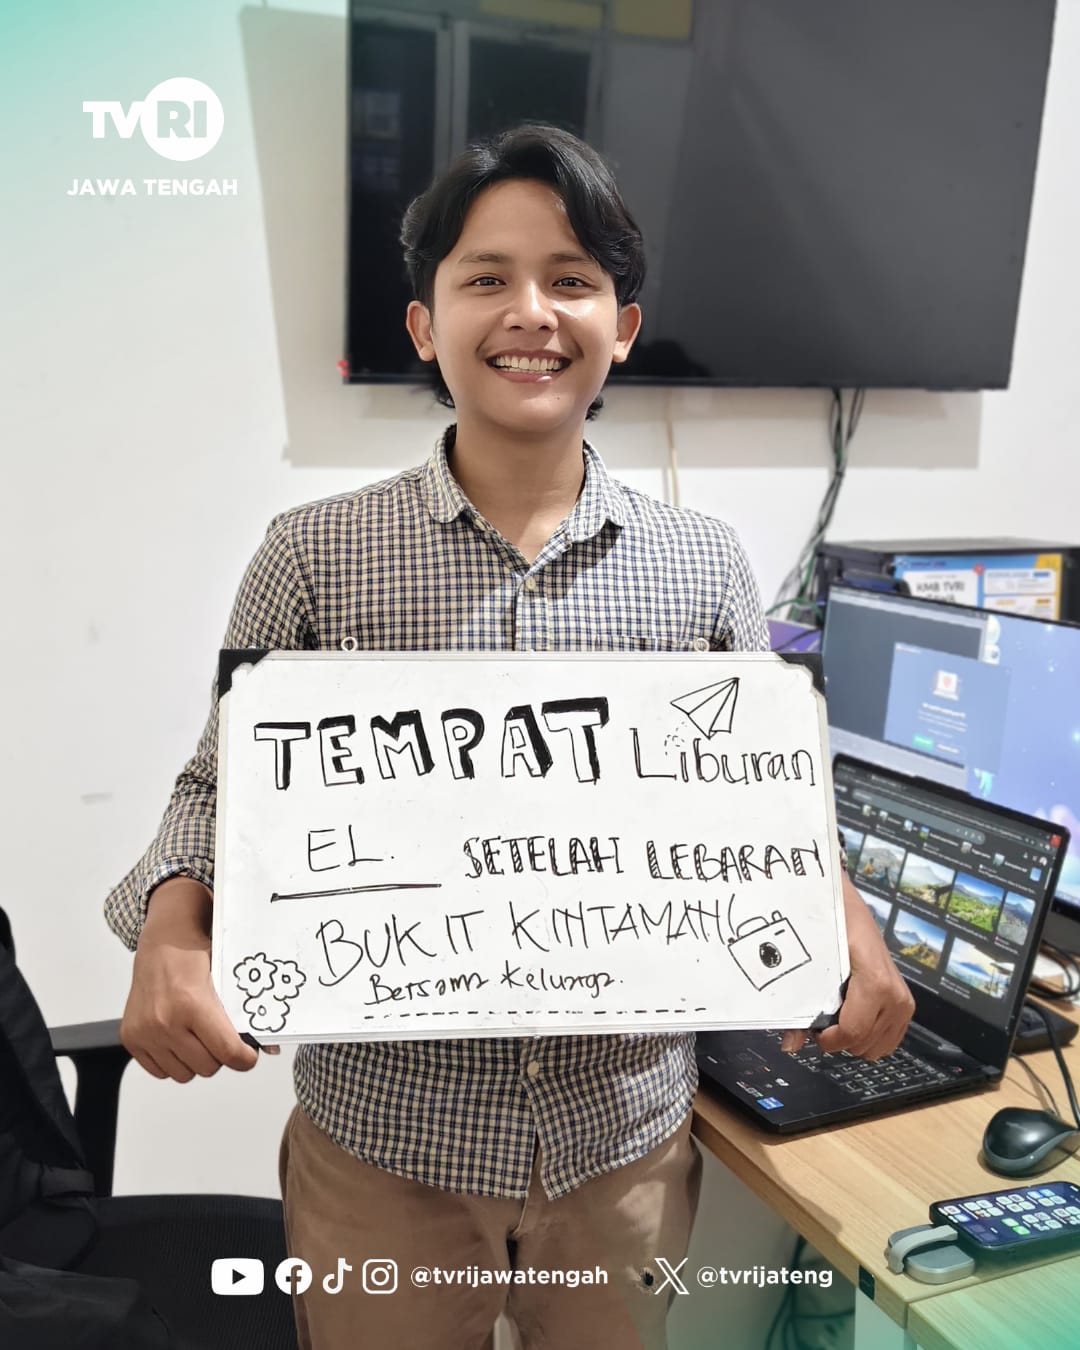 TVRI
JAWA TENGAH
KMB TVRI
TEMPAT Liburan
EL. SETELAH LEBARAN
BUKIT KINTAMANI
Bersama Keluarga.
@tvrijawatengah @tvrijateng